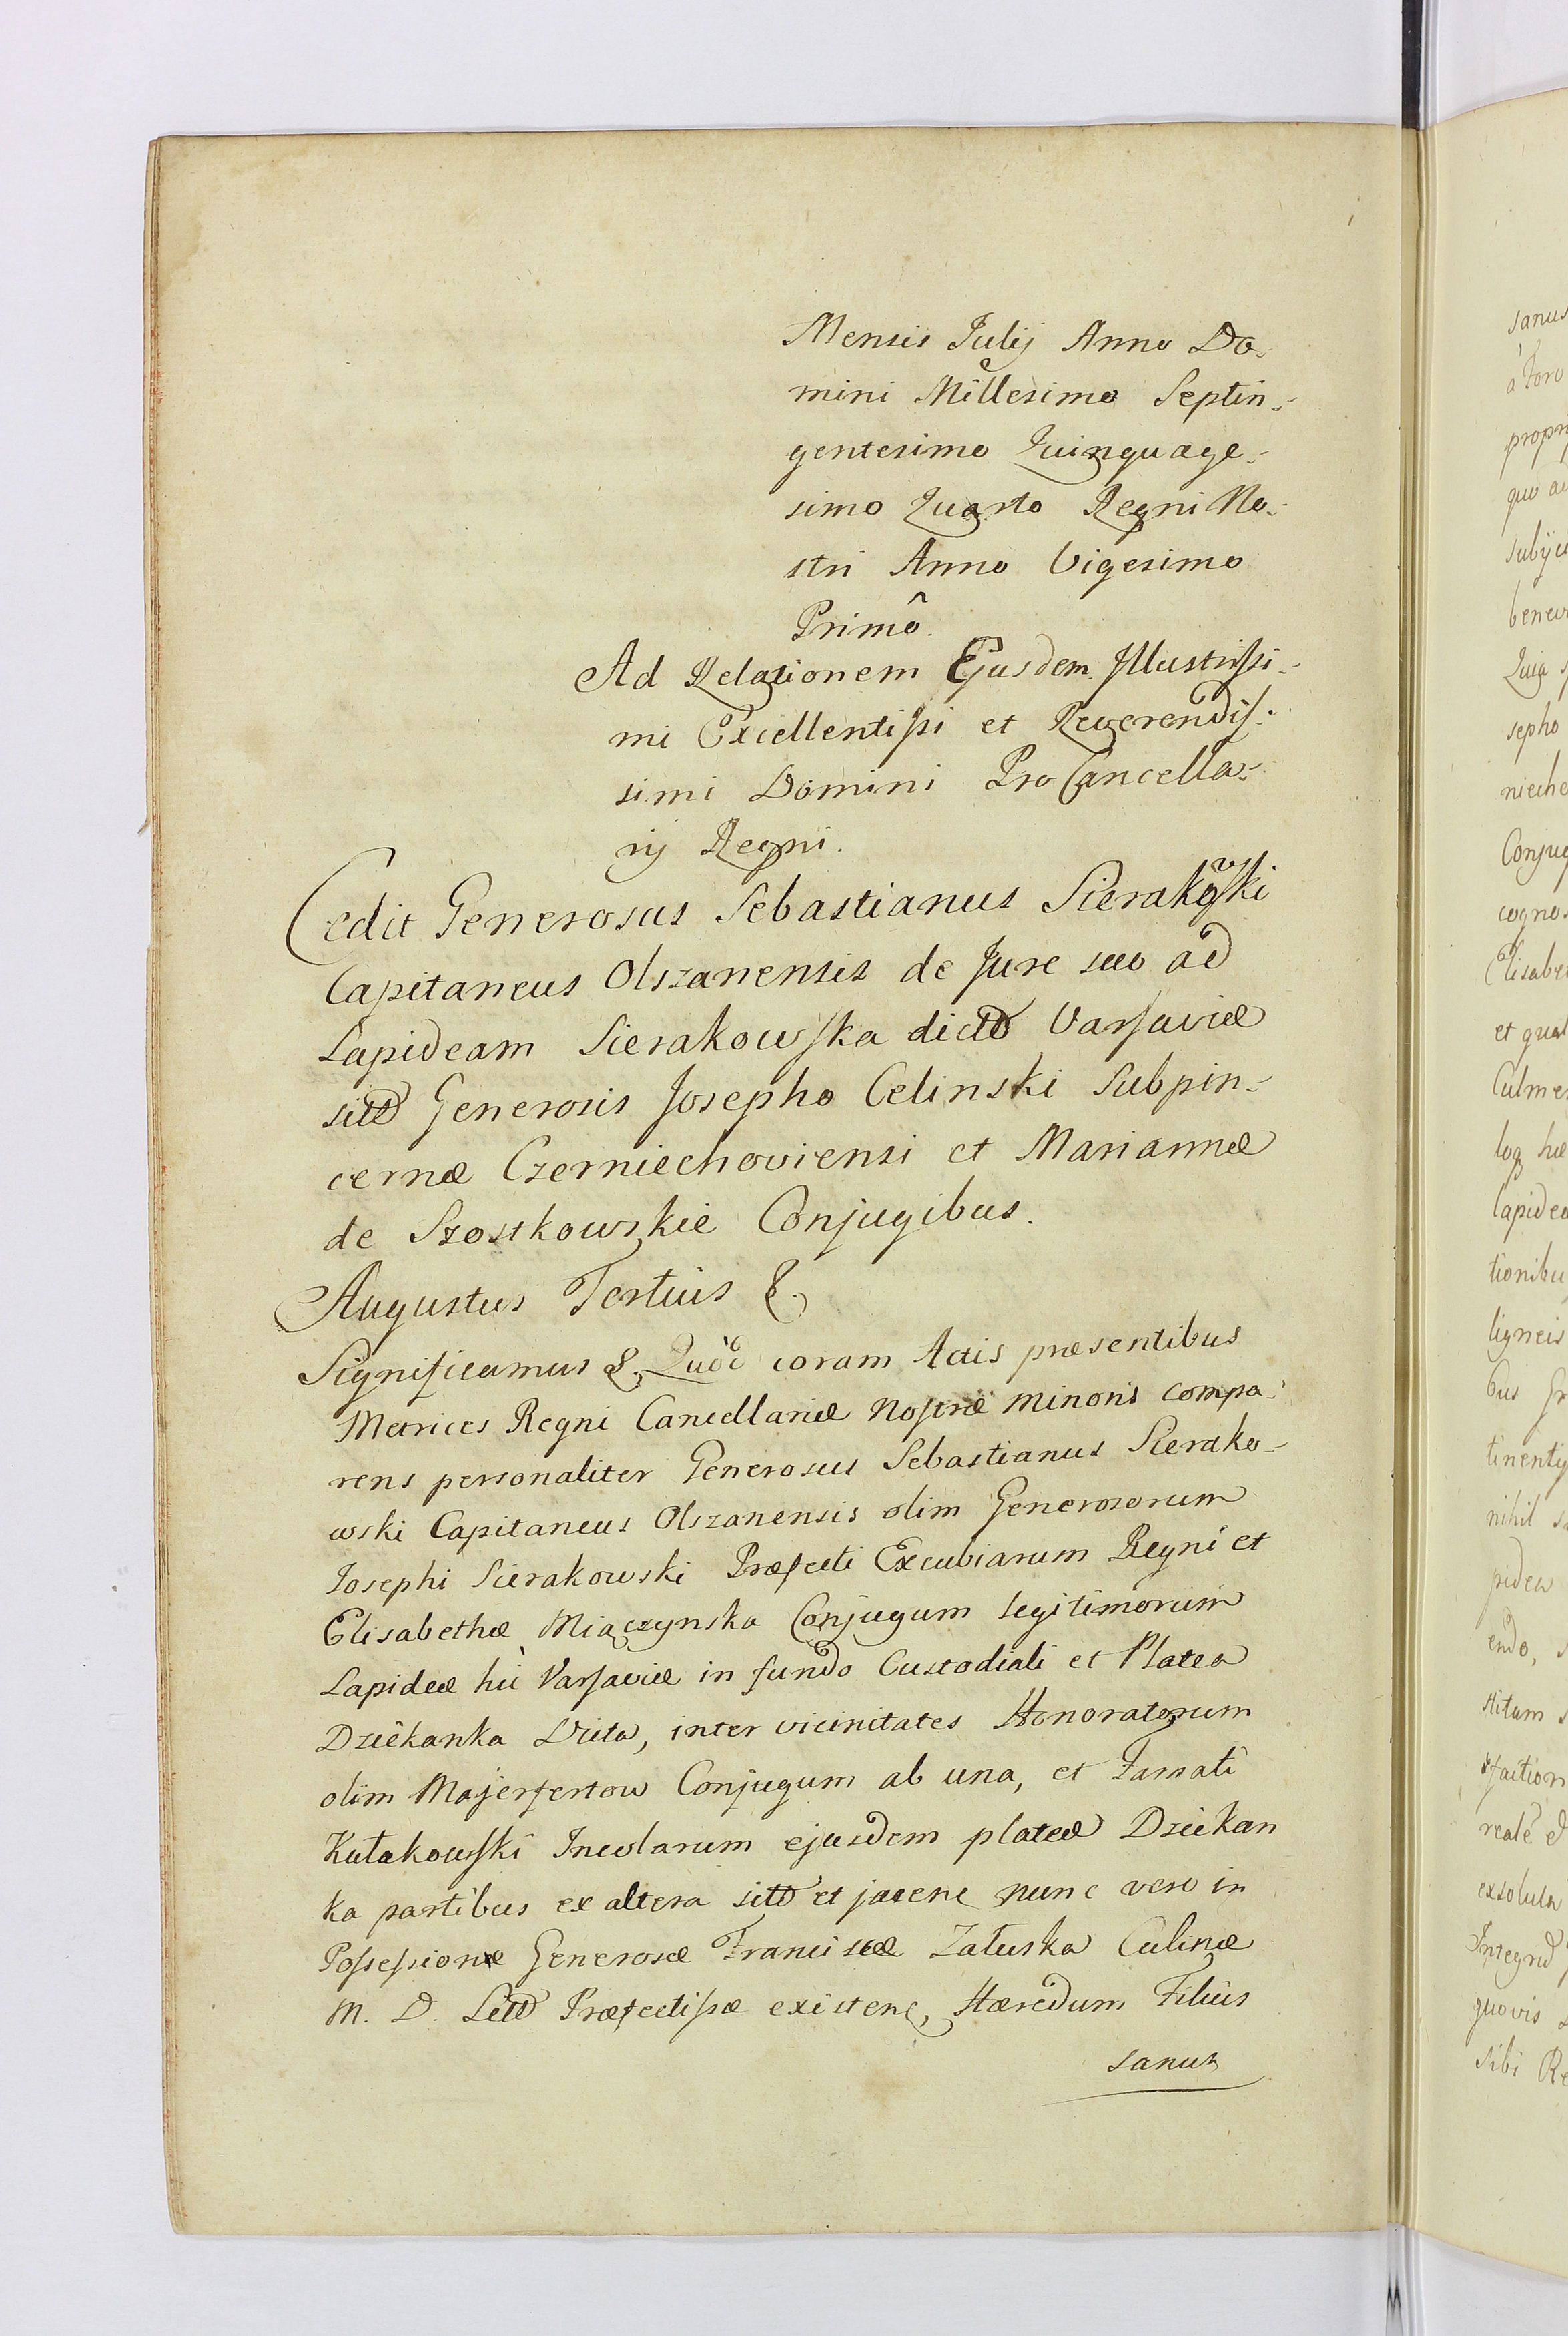 Mensis Julij Anno Do-
mini Millesimo Septin-
gentesimo Quinquage-
simo Quarto Regni No-
stri Anno Vigesimo
Primô.
Ad Relationem Ejusdem Illustrissi-
mi Excellentissi et Reverendis-
simi Domini Pro Cancella-
rij Regni.
Cedit Generosus Sebastianus Sierakowski
Capitaneus Olszanensis de Jure suo ad
Lapideam Sierakowska dictã Varsaviæ
sitã Generosis Josepho Celinski Subpin-
cernæ Czerniechoviensi et Mariannæ
de Szostkowskie Conjugibus.
Augustus Tertius &.
Significamus &. Quòd coram Actis præsentibus
Metrices Regni Cancellariæ Nostræ minoris compa-
rens personaliter Generosus Sebastianus Sierako-
wski Capitaneus Olszanensis olim Generosorum
Josephi Sierakowski Præfecti Excubiarum Regni et
Elisabethæ Miączynska Conjugum legitimorum
Lapideæ hìc Varsaviæ in fundo Custodiali et Platea
Dziekanka dicta, inter vicinitates Honoratorum
olim Majerfertow Conjugum ab una, et Famati
Kułakowski Incolarum ejusdem plateæ Dziekan
ka partibus ex altera sitã et jacenc nunc vero in
Possessionæ Generosæ Franciscæ Załuska Culinæ
M. D. Littã Præfectissæ existenc, Hæredum Filius
sanus
sanus
à Foro
quo
Quia
sepho
Conjug
cogno
et qual
tionibu
ligneis
bus
nihil
endo,
Stitum
exsoluta
quovis
sibi